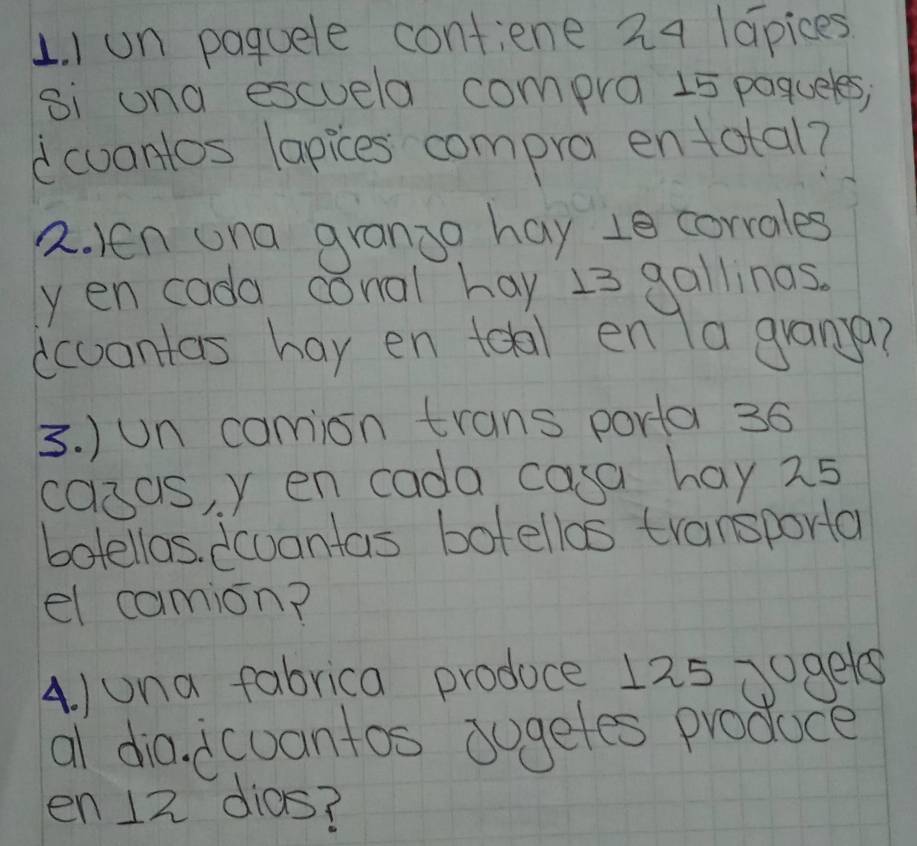 1.) un paquete contiene 24 lápices.
si una escuela compra 15 paquetes,
¿cuantos lapices compra en total?
2.) en una granja hay 18 corrales
y en cada corral hay 13 gallinas.
¿cuantas hay en total en la granja?
3.) un camión trans porta 36
cajas, y en cada caja hay 25
botellas. ¿cuantas botellas transporta
el camión?
4.) una fabrica produce 125 jugetes
al dia. ¿cuantos jugetes produce
en 12 dias?